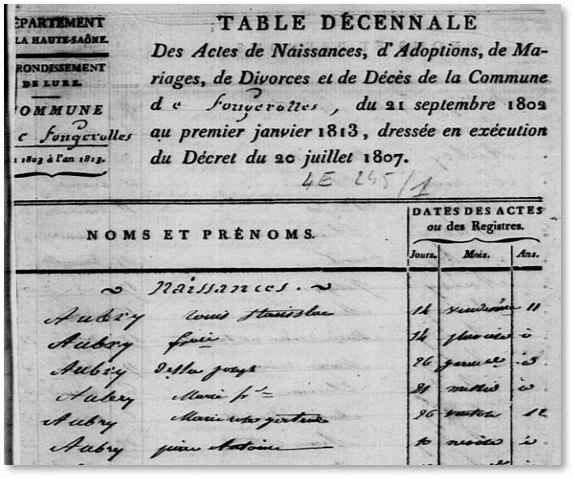 DÉPARTEMENT
LA HAUTE-SAÔNE.
RRONDISSEMENT
DE LURE.
COMMUNE
e fougerolles
1803 à l'an 1813.
TABLE DÉCENNALE
Des Actes de Naissances, d'Adoptions, de Ma-
riages, de Divorces et de Décès de la Commune
de fougerolles, du 21 septembre 1802
au premier janvier 1813, dressée en exécution
du Décret du 20 juillet 1807.
4E 245/1
NOMS ET PRÉNOMS.
DATES DES ACTES
ou des Registres.
Jours. Mois. Ans.
Naissances.
Aubry Louis Stanislas 14 11
Aubry 14
Aubry joseph 26
Aubry Marie 21
Aubry Marie rose 26 12
Aubry pierre Antoine 10